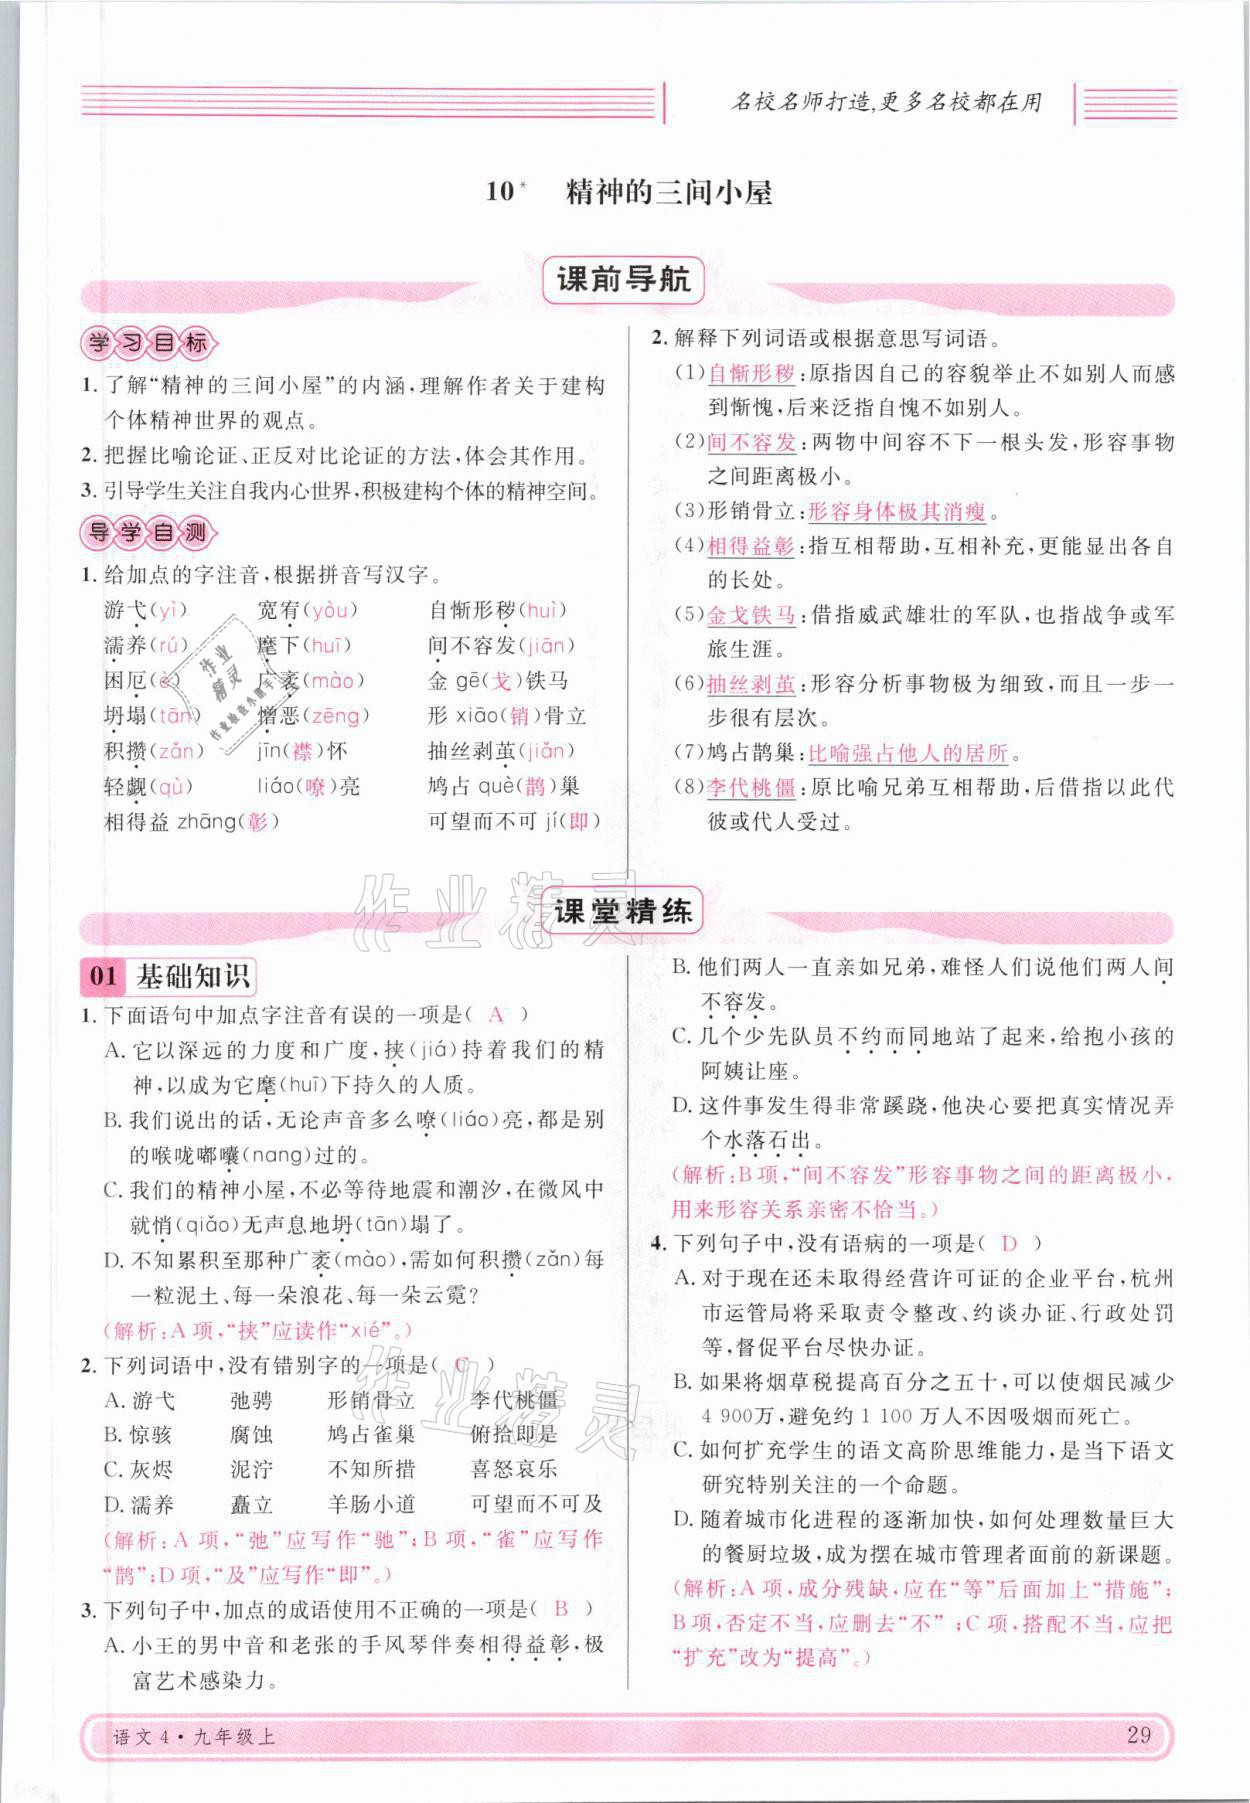 名校名师打造,更多名校都在用
10* 精神的三间小屋
课前导航
学习目标
1. 了解“精神的三间小屋”的内涵,理解作者关于建构
个体精神世界的观点。
2. 把握比喻论证、正反对比论证的方法,体会其作用。
3. 引导学生关注自我内心世界,积极建构个体的精神空间。
导学自测
1. 给加点的字注音,根据拼音写汉字。
游弋(yì) 宽宥(yòu) 自惭形秽(huì)
濡养(rú) 麾下(huī) 间不容发(jiān)
困厄(è) 广袤(mào) 金 gē(戈)铁马
坍塌(tān) 憎恶(zēng) 形 xiāo(销)骨立
积攒(zǎn) jīn(襟)怀 抽丝剥茧(jiǎn)
轻觑(qù) liáo(嘹)亮 鸠占 què(鹊)巢
相得益 zhāng(彰) 可望而不可 jí(即)
2. 解释下列词语或根据意思写词语。
(1)自惭形秽:原指因自己的容貌举止不如别人而感
到惭愧,后来泛指自愧不如别人。
(2)间不容发:两物中间容不下一根头发,形容事物
之间距离极小。
(3)形销骨立:形容身体极其消瘦。
(4)相得益彰:指互相帮助,互相补充,更能显出各自
的长处。
(5)金戈铁马:借指威武雄壮的军队,也指战争或军
旅生涯。
(6)抽丝剥茧:形容分析事物极为细致,而且一步一
步很有层次。
(7)鸠占鹊巢:比喻强占他人的居所。
(8)李代桃僵:原比喻兄弟互相帮助,后借指以此代
彼或代人受过。
课堂精练
01 基础知识
1. 下面语句中加点字注音有误的一项是( A )
A. 它以深远的力度和广度,挟(jiá)持着我们的精
神,以成为它麾(huī)下持久的人质。
B. 我们说出的话,无论声音多么嘹(liáo)亮,都是别
的喉咙嘟囔(nang)过的。
C. 我们的精神小屋,不必等待地震和潮汐,在微风中
就悄(qiǎo)无声息地坍(tān)塌了。
D. 不知累积至那种广袤(mào),需如何积攒(zǎn)每
一粒泥土、每一朵浪花、每一朵云霓?
(解析:A 项,“挟”应读作“xié”。)
2. 下列词语中,没有错别字的一项是( C )
A. 游弋 弛骋 形销骨立 李代桃僵
B. 惊骇 腐蚀 鸠占雀巢 俯拾即是
C. 灰烬 泥泞 不知所措 喜怒哀乐
D. 濡养 矗立 羊肠小道 可望而不可及
(解析:A 项,“弛”应写作“驰”;B 项,“雀”应写作
“鹊”;D项,“及”应写作“即”。)
3. 下列句子中,加点的成语使用不正确的一项是( B )
A. 小王的男中音和老张的手风琴伴奏相得益彰,极
富艺术感染力。
B. 他们两人一直亲如兄弟,难怪人们说他们两人间
不容发。
C. 几个少先队员不约而同地站了起来,给抱小孩的
阿姨让座。
D. 这件事发生得非常蹊跷,他决心要把真实情况弄
个水落石出。
(解析:B 项,“间不容发”形容事物之间的距离极小,
用来形容关系亲密不恰当。)
4. 下列句子中,没有语病的一项是( D )
A. 对于现在还未取得经营许可证的企业平台,杭州
市运管局将采取责令整改、约谈办证、行政处罚
等,督促平台尽快办证。
B. 如果将烟草税提高百分之五十,可以使烟民减少
4 900万,避免约 1 100 万人不因吸烟而死亡。
C. 如何扩充学生的语文高阶思维能力,是当下语文
研究特别关注的一个命题。
D. 随着城市化进程的逐渐加快,如何处理数量巨大
的餐厨垃圾,成为摆在城市管理者面前的新课题。
(解析:A 项,成分残缺,应在“等”后面加上“措施”;
B项,否定不当,应删去“不”;C 项,搭配不当,应把
“扩充”改为“提高”。)
语文 4 · 九年级上
29
作业精灵
作业精灵
作业精灵
作业检查小助手